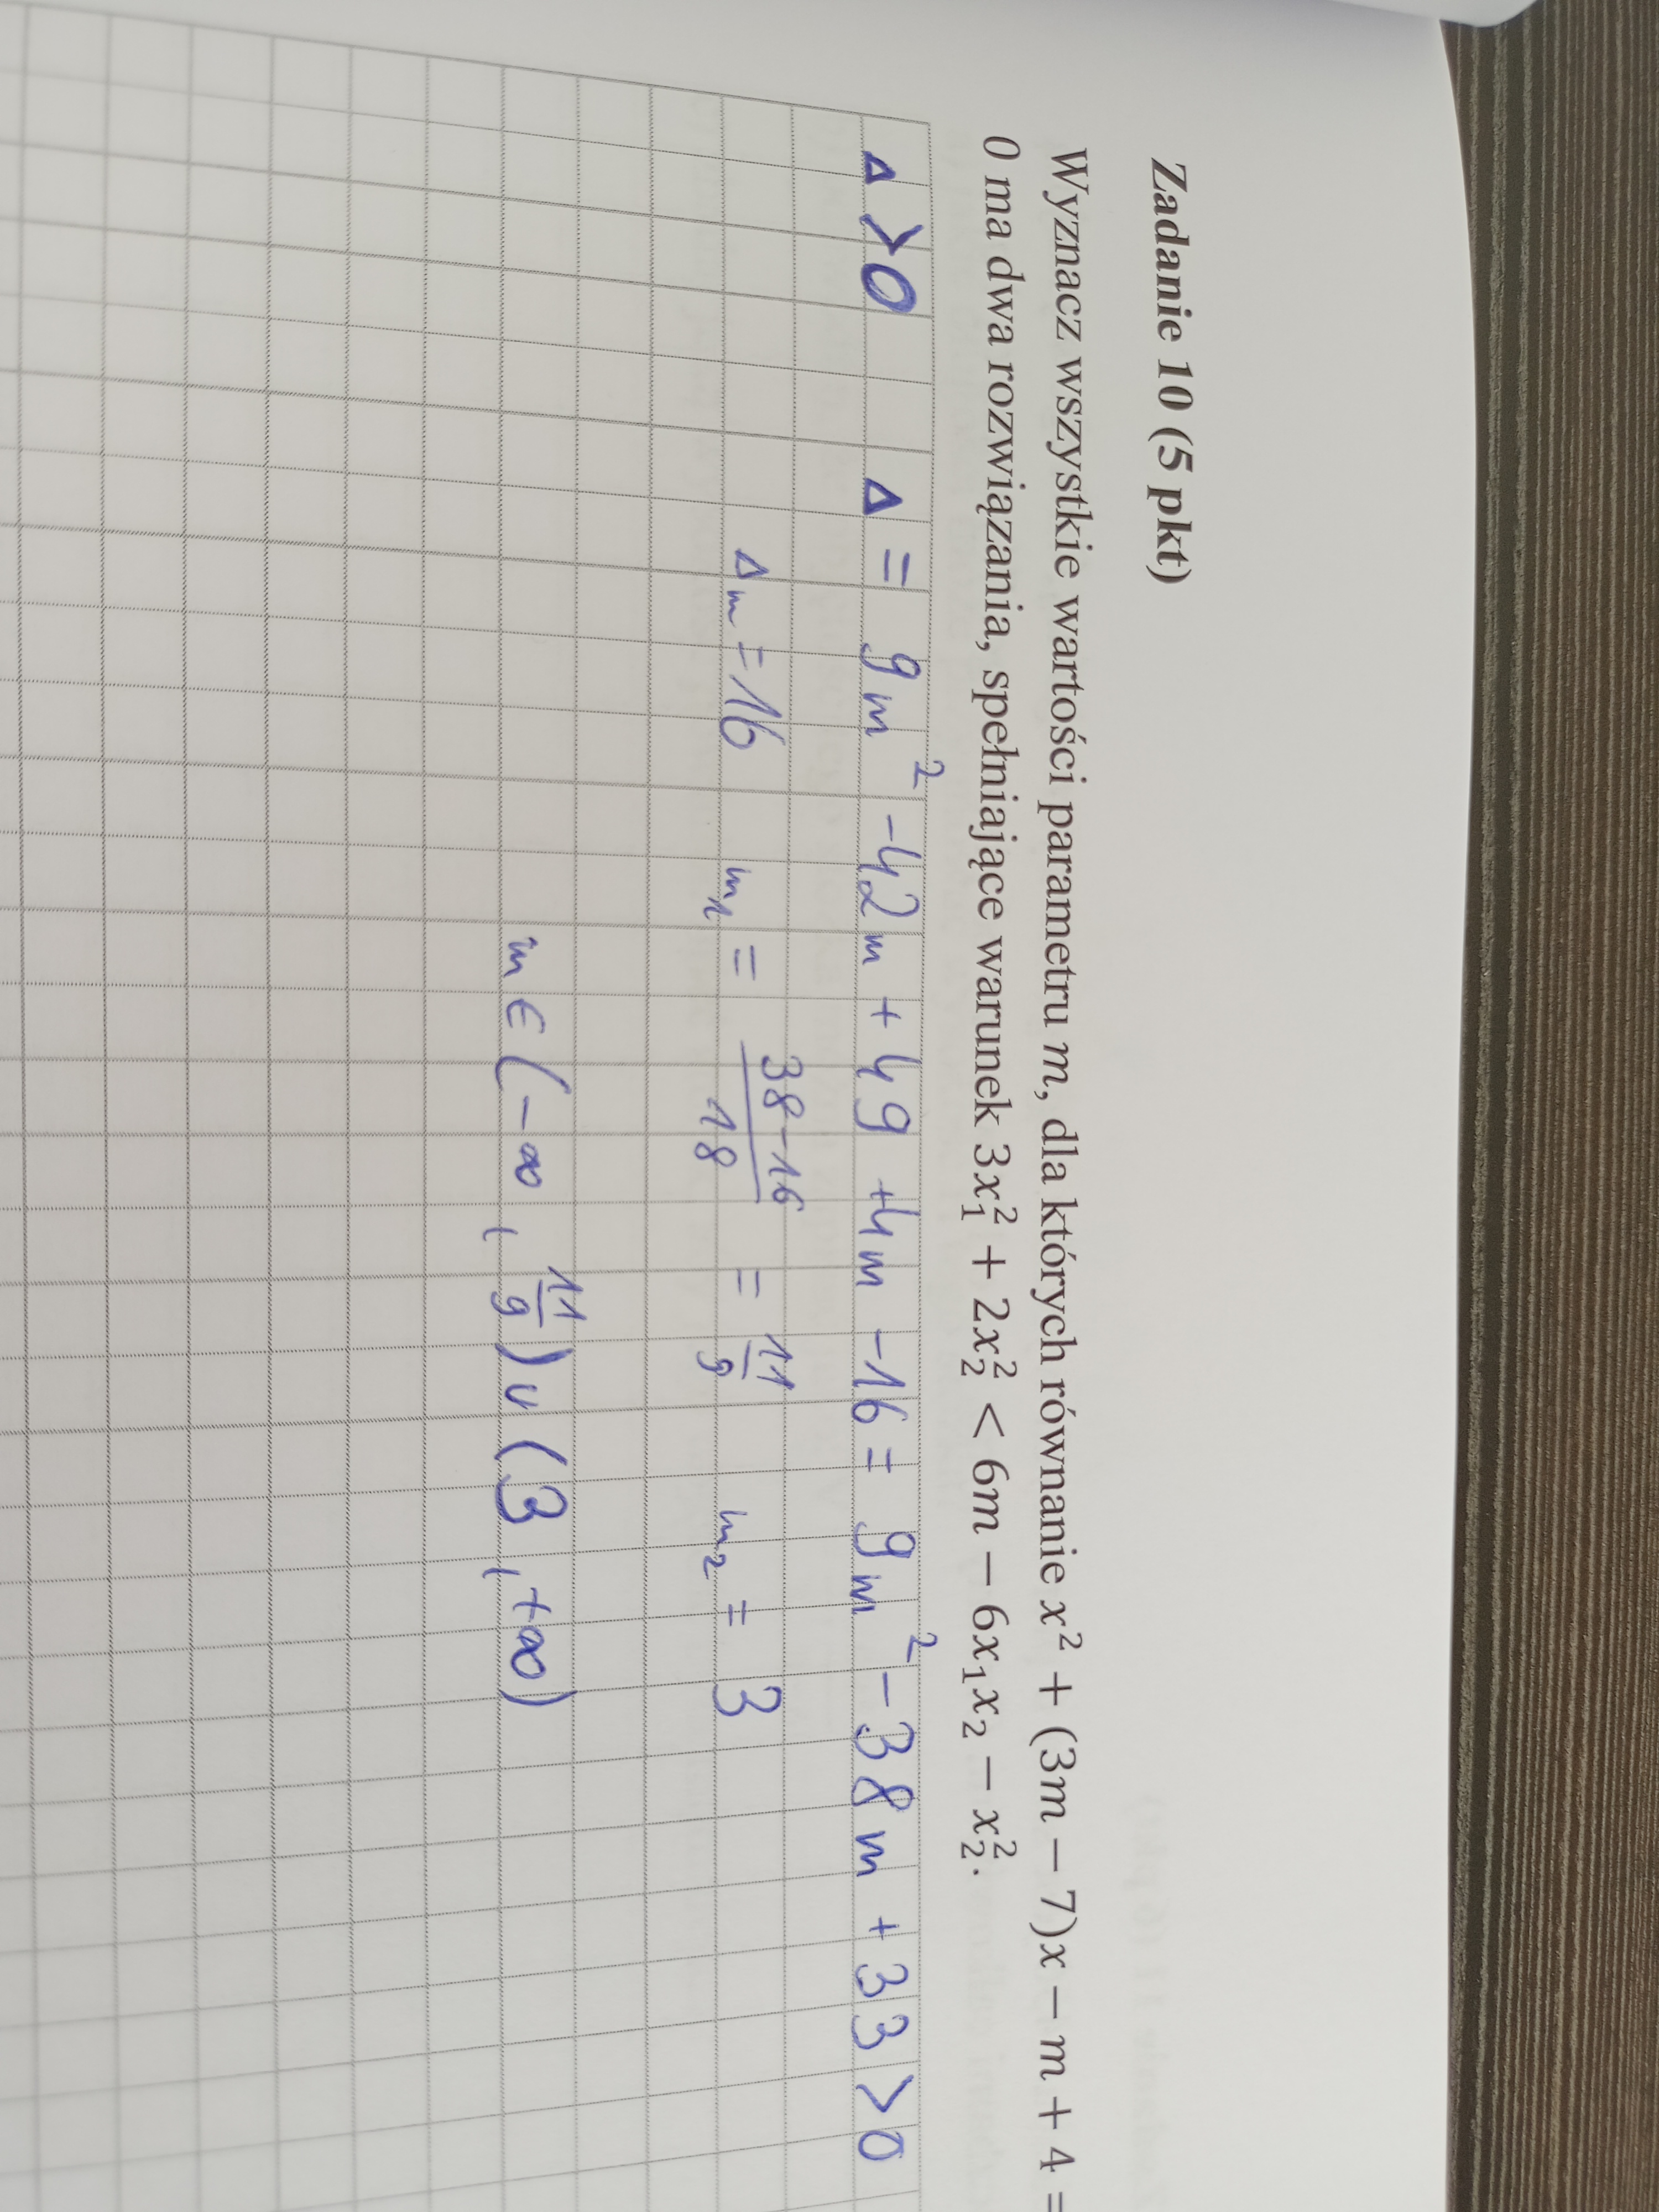 Zadanie 10 (5 pkt)
Wyznacz wszystkie wartości parametru m, dla których równanie x² + (3m − 7)x − m + 4 =
0 ma dwa rozwiązania, spełniające warunek 3x₁² + 2x₂² < 6m − 6x₁x₂ − x₂².
Δ > 0 Δ = 9m² − 42m + 49 + 4m − 16 = 9m² − 38m + 33 > 0
Δₘ = 16 m₁ = (38−16)/18 = 11/9 m₂ = 3
m ∈ (−∞, 11/9) ∪ (3, +∞)